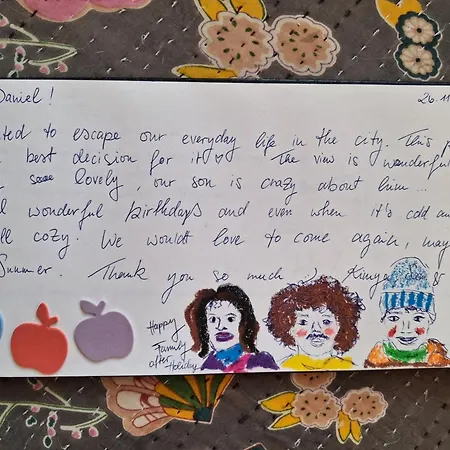 Daniel! 26.11
ted to escape our everyday life in the city. This p
best decision for it The view is wonderful
lovely, our son is crazy about him...
wonderful birthdays and even when it's cold an
ll cozy. We would love to come again, may
Summer. Thank you so much :)
Happy
Family
after
Holiday